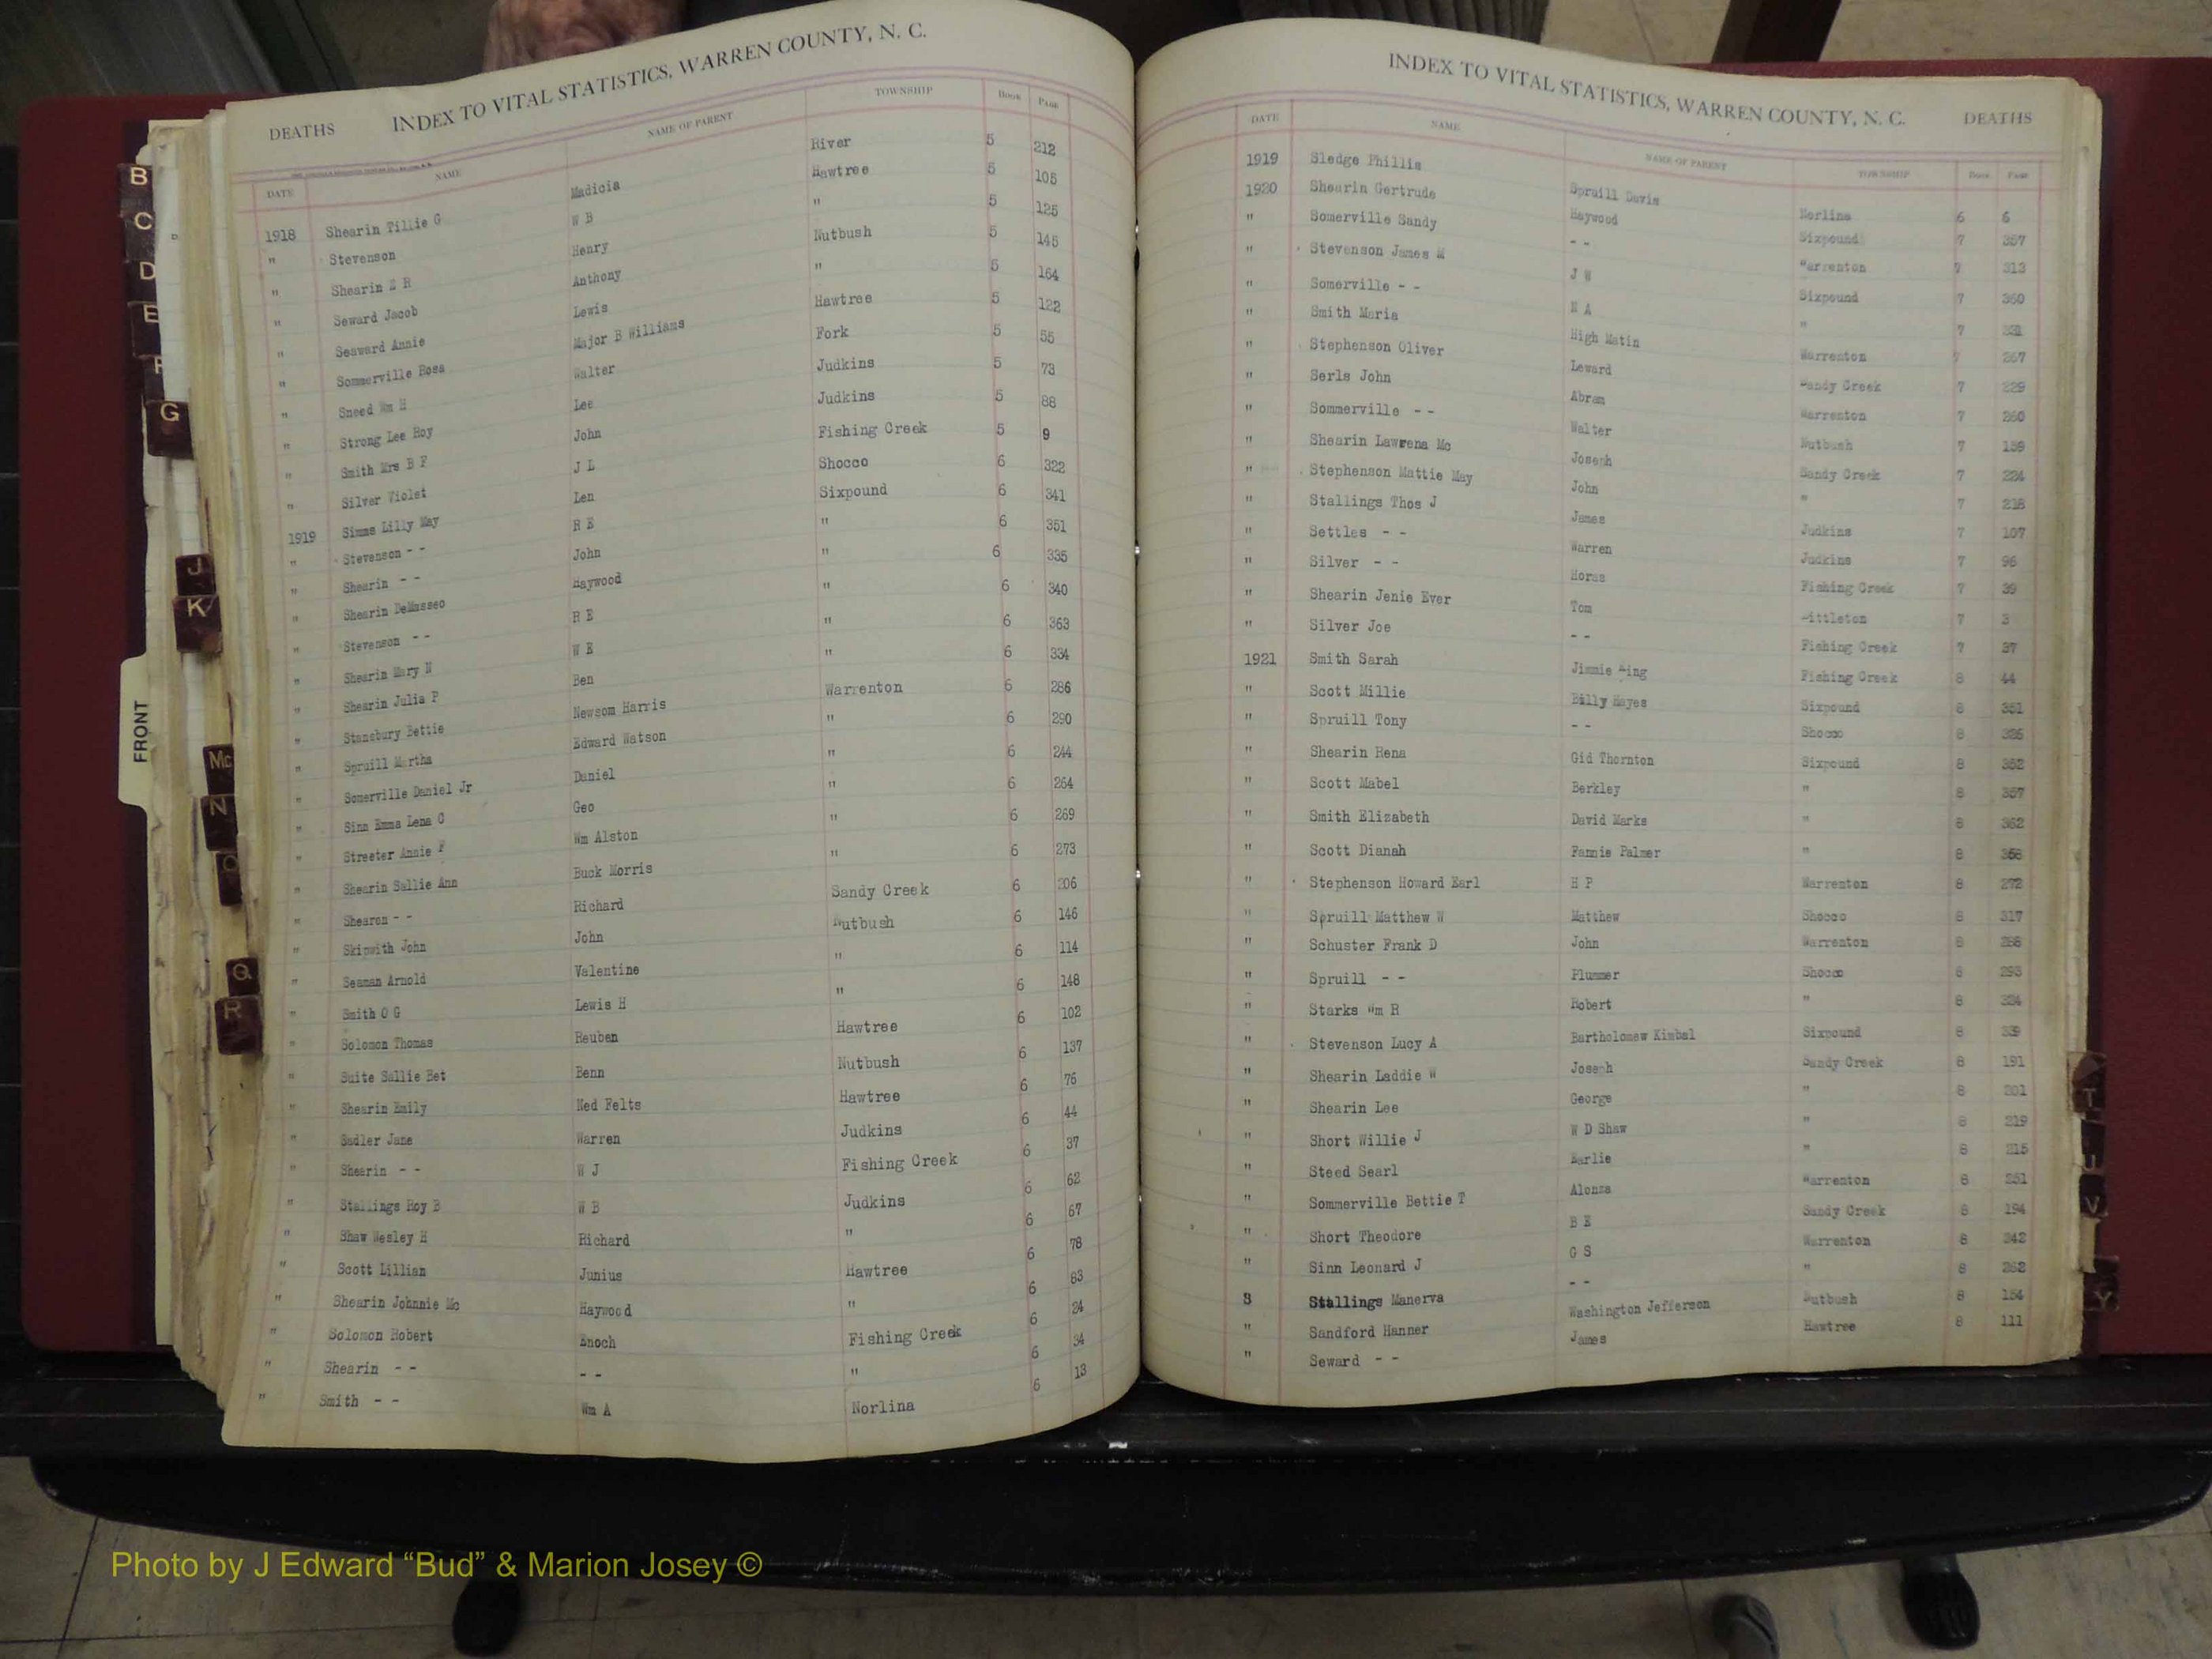 DEATHS INDEX TO VITAL STATISTICS, WARREN COUNTY, N. C.
DATE NAME NAME OF PARENT TOWNSHIP BOOK PAGE
1918 Shearin Tillie G Madicia River 5 212
" Stevenson W B Hawtree 5 105
" Shearin Z R Henry " 5 125
" Seward Jacob Anthony Nutbush 5 145
" Seaward Annie Lewis " 5 164
" Sommerville Rosa Major B Williams Hawtree 5 122
" Sneed Wm H Walter Fork 5 55
" Strong Lee Roy Lee Judkins 5 73
" Smith Mrs B F John Judkins 5 88
" Silver Violet J L Fishing Creek 5 9
1919 Simms Lilly May Len Shocco 6 322
" Stevenson - - R E Sixpound 6 341
" Shearin - - John " 6 351
" Shearin DeMasseo Haywood " 6 335
" Stevenson - - R E " 6 340
" Shearin Mary N W E " 6 363
" Shearin Julia P Ben " 6 334
" Stansbury Bettie Newsom Harris Warrenton 6 286
" Spruill Martha Edward Watson " 6 290
" Somerville Daniel Jr Daniel " 6 244
" Sinn Emma Lena C Geo " 6 264
" Streeter Annie F Wm Alston " 6 269
" Shearin Sallie Ann Buck Morris " 6 273
" Shearen - - Richard Sandy Creek 6 206
" Skipwith John John Nutbush 6 146
" Seaman Arnold Valentine " 6 114
" Smith O G Lewis H " 6 148
" Solomon Thomas Reuben Hawtree 6 102
" Suite Sallie Bet Benn Nutbush 6 137
" Shearin Emily Ned Felts Hawtree 6 76
" Sadler Jane Warren Judkins 6 44
" Shearin - - W J Fishing Creek 6 37
" Stallings Roy B W B Judkins 6 62
" Shaw Wesley H Richard " 6 67
" Scott Lillian Junius Hawtree 6 78
" Shearin Johnnie Mc Haywood " 6 83
" Solomon Robert Enoch Fishing Creek 6 24
" Shearin - - - - " 6 34
" Smith - - Wm A Norlina 6 13
INDEX TO VITAL STATISTICS, WARREN COUNTY, N. C. DEATHS
DATE NAME NAME OF PARENT TOWNSHIP BOOK PAGE
1919 Sledge Phillis Spruill Davis Norlina 6 6
1920 Shearin Gertrude Haywood Sixpound 7 357
" Somerville Sandy - - Warrenton 7 313
" Stevenson James M J W Sixpound 7 360
" Somerville - - N A " 7
" Smith Maria High Matin Warrenton 7 267
" Stephenson Oliver Leward Sandy Creek 7 229
" Serls John Abram Warrenton 7 260
" Sommerville - - Walter Nutbush 7 159
" Shearin Lawrena Mc Joseph Sandy Creek 7 224
" Stephenson Mattie May John " 7 218
" Stallings Thos J James Judkins 7 107
" Settles - - Warren Judkins 7 96
" Silver - - Horas Fishing Creek 7 39
" Shearin Jenie Ever Tom Littleton 7 3
" Silver Joe - - Fishing Creek 7 37
1921 Smith Sarah Jimmie King Fishing Creek 8 44
" Scott Millie Billy Hayes Sixpound 8 351
" Spruill Tony - - Shocco 8
" Shearin Rena Gid Thornton Sixpound 8 352
" Scott Mabel Berkley " 8 357
" Smith Elizabeth David Marks " 8 362
" Scott Dianah Fannie Palmer " 8
" Stephenson Howard Earl H P Warrenton 8 272
" Spruill Matthew W Matthew Shocco 8 317
" Schuster Frank D John Warrenton 8
" Spruill - - Plummer Shocco 8 293
" Starks Wm R Robert " 8 324
" Stevenson Lucy A Bartholomew Kimbal Sixpound 8
" Shearin Laddie W Joseph Sandy Creek 8 191
" Shearin Lee George " 8 201
" Short Willie J W D Shaw " 8 219
" Steed Searl Earlie " 8 215
" Sommerville Bettie T Alonza Warrenton 8 251
" Short Theodore B E Sandy Creek 8 194
" Sinn Leonard J G S Warrenton 8 242
8 Stallings Manerva - - " 8 262
" Sandford Hanner Washington Jefferson Nutbush 8 154
" Seward - - James Hawtree 8 111
B
C
D
E
F
G
J
K
FRONT
Mc
N
O
Q
R
T
U
V
Y
Photo by J Edward “Bud” & Marion Josey ©